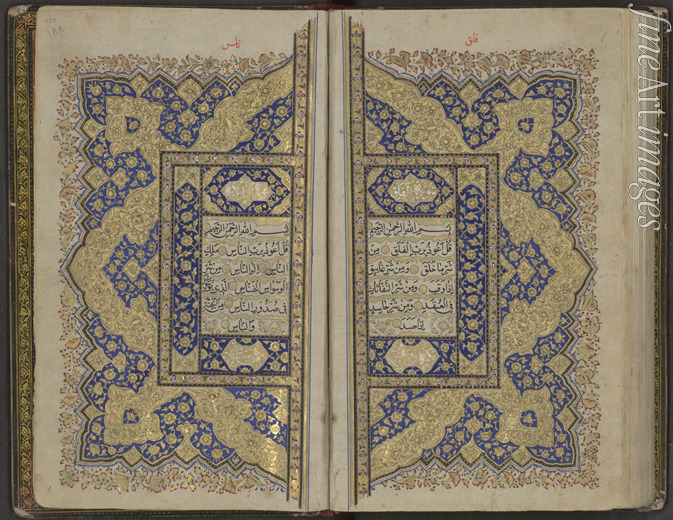 فلق
بسم الله الرحمن الرحيم
قل أعوذ برب الفلق من
شر ما خلق ومن شر غاسق
إذا وقب ومن شر النفاثات
في العقد ومن شر حاسد
إذا حسد
ناس
بسم الله الرحمن الرحيم
قل أعوذ برب الناس ملك
الناس إله الناس من شر
الوسواس الخناس الذي يوسوس
في صدور الناس من الجنة
والناس
fine Art images